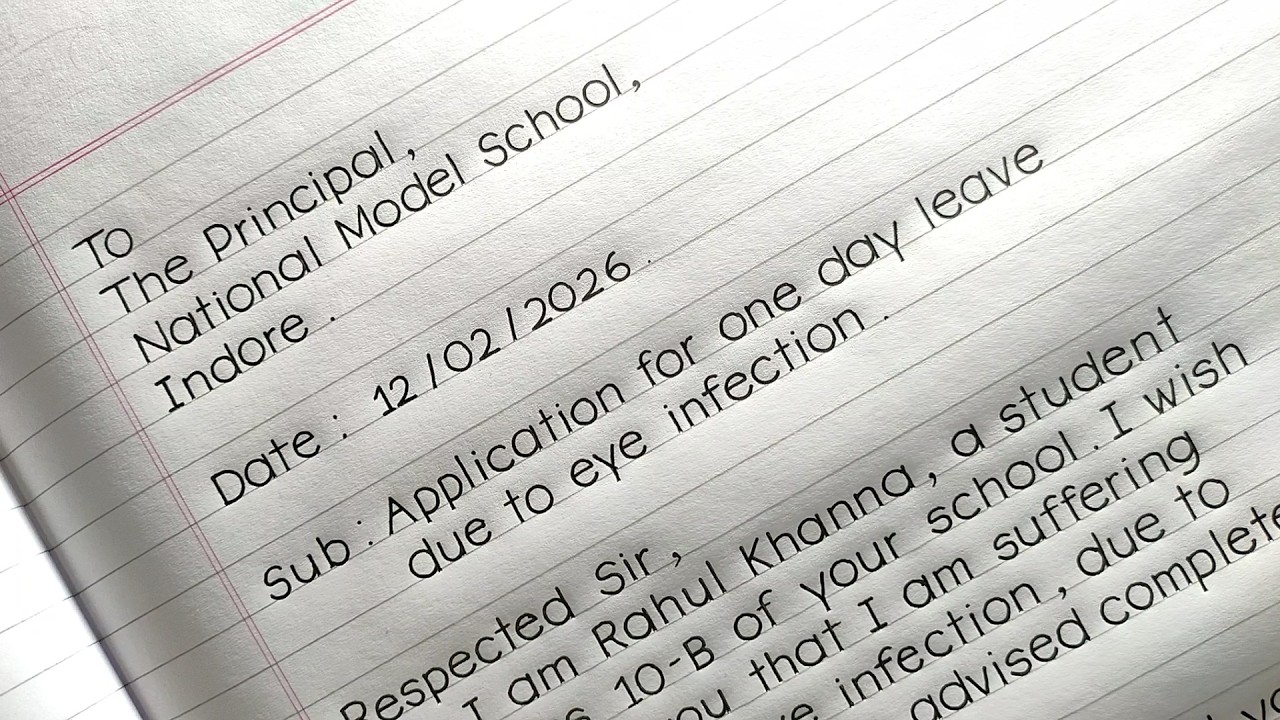 To
The Principal,
National Model School,
Indore.
Date : 12/02/2026.
Sub : Application for one day leave
due to eye infection.
Respected Sir,
I am Rahul Khanna, a student
10-B of your school. I wish
that I am suffering
infection, due to
advised complete